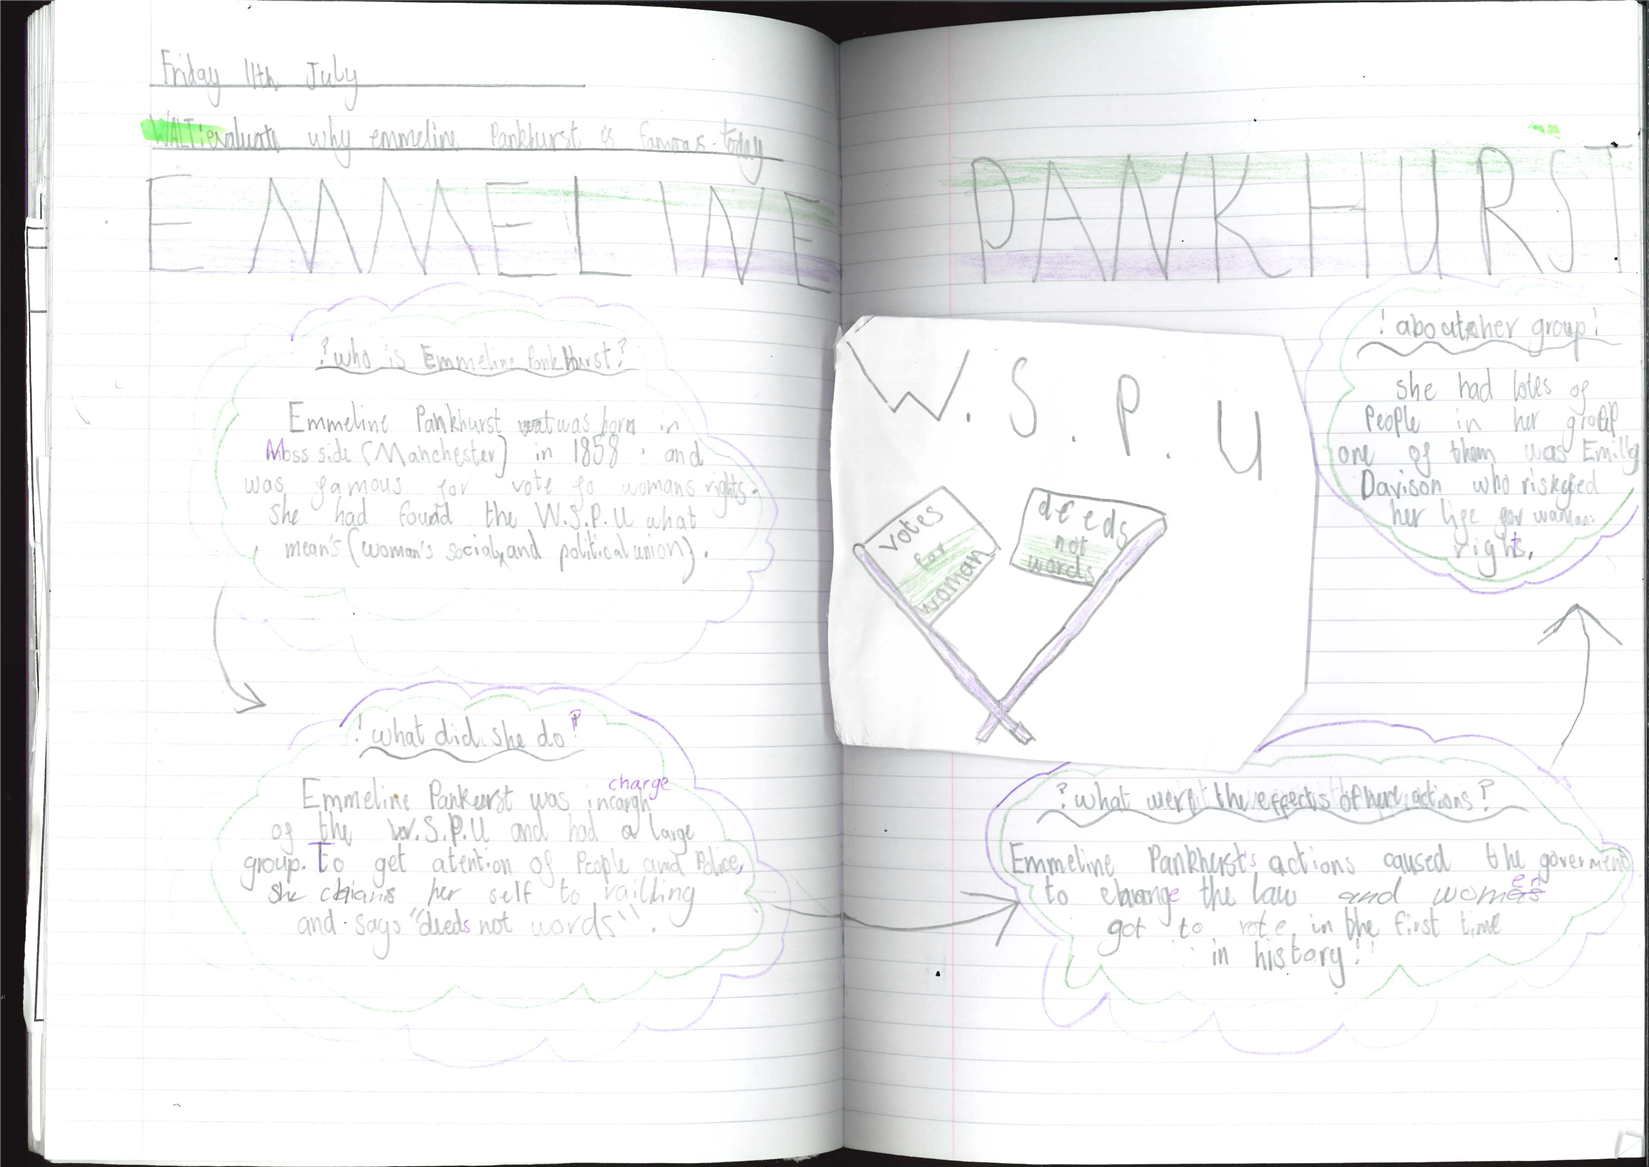 Friday 11th July
WALT: evaluate why emmeline Pankhurst is famous today
EMMELINE PANKHURST
? who is Emmeline Pankhurst?
Emmeline Pankhurst was born in
Moss side (Manchester) in 1858 . and
was famous for vote fo womans rights.
she had found the W.S.P.U what
mean's (woman's social and political union).
! what did she do?
Emmeline Pankurst was incargh
charge
of the W.S.P.U and had a large
group. To get atention of People and Police,
she chains her self to railling
and says "deeds not words".
W.S.P.U
votes
for
woman
deeds
not
words
? what were the effects of her actions?
Emmeline Pankhurst's actions caused the goverment
to change the law and women
got to vote in the first time
in history!!
! about her group!
she had lotes of
People in her group
one of them was Emily
Davison who risked
her life for
rights.